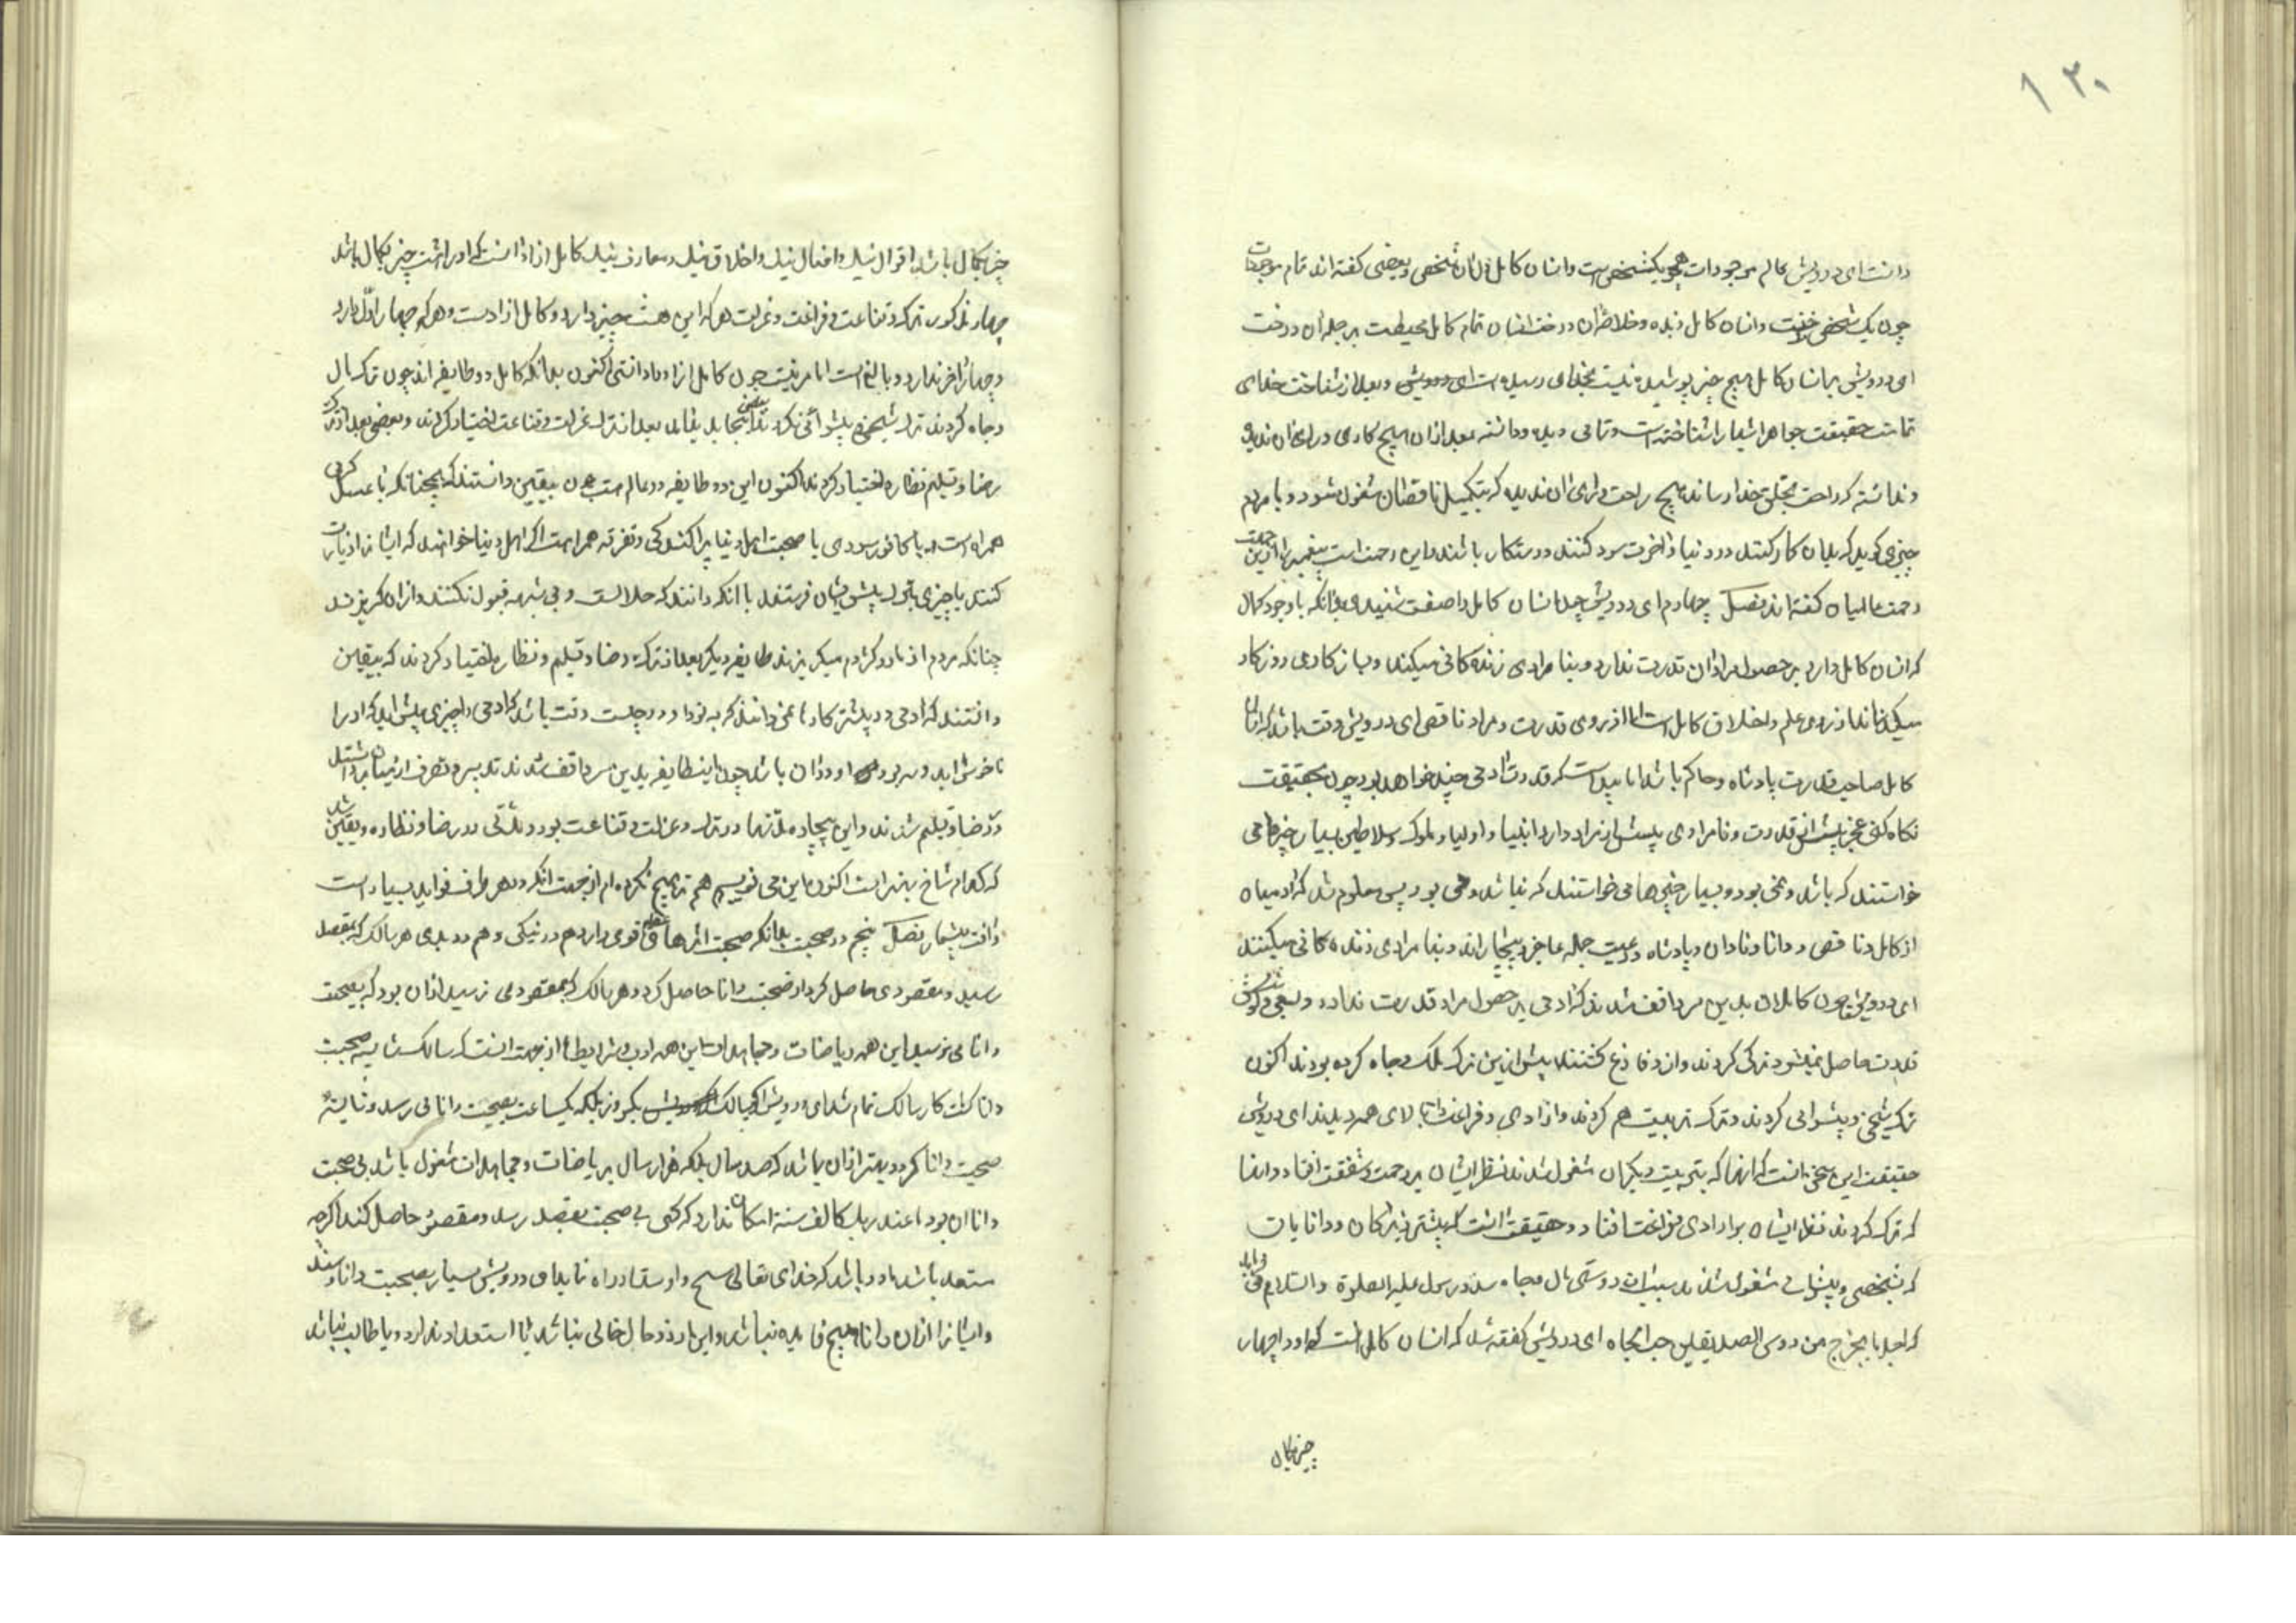 ۱۳۰
دانست ای درویش عالم موجودات همچو یکشخص است و انسان کامل دل آن شخص و بعضی گفته اند تمام موجودات
چون یک شخص است و انسان کامل زبده و خلاصه آن درخت انسان تمام کامل محیطست بر جمله آن درخت
ای درویش بر انسان کامل هیچ چیز پوشیده نیست بخدای رسیده است ای درویش و بعد از شناخت خدای
تمامت حقیقت جواهر اشیا را شناخته است و تمامی دیده و دانسته بعد از آن هیچ کاری ورای آن ندیده
و ندانسته که راحت بخلق خدا رساند هیچ راحت ورای آن ندیده که بتکمیل ناقصان مشغول شود و با مردم
چیزی گوید که بدان کار کنند در دنیا و آخرت سود کنند و رستکار باشند و این رحمت است پیغمبر را ازین جهت
رحمت عالمیان گفته اند فصل چهارم ای درویش چون انسان کامل را صفت شنیدی بدانکه با وجود کمال
که انسان کامل دارد بر حصول مراد آن قدرت ندارد و بنا مرادی زندگانی میکند و بسازگاری روزکار
میگذراند از روی علم و اخلاق کامل است اما از روی قدرت و مراد ناقص ای درویش وقت باشد که انسان
کامل صاحب قدرت پادشاه و حاکم باشد اما پیداست که قدرت آدمی چند خواهد بود چون بحقیقت
نگاه کنی عجز بیش از قدرت و نامرادی بیش از مراد دارد انبیا و اولیا و ملوک و سلاطین بسیار چیزها می
خواستند که باشد و نمی بود و بسیار چیزها می خواستند که نباشد و می بود پس معلوم شد که آدمیان
از کامل و ناقص و دانا و نادان و پادشاه و رعیت جمله عاجز و بیچاره اند و بنا مرادی زنده کانی میکنند
ای درویش چون کاملان بدین سر واقف شدند که آدمی بر حصول مراد قدرت ندارد و بسعی و کوشش
قدرت حاصل نمیشود ترک کردند و آزاد و فارغ گشتند پیش ازین ترک ملک و جاه کرده بودند اکنون
ترک شیخی و پیشوایی کردند و ترک تربیت هم کردند و آزادی و فراغت بالای همه دیدند ای درویش
حقیقت این سخن آنست که آنها که بتربیت دیگران مشغول شدند نظر ایشان بر رحمت و شفقت افتاد و آنها
که ترک کردند نظر ایشان بر آزادی و فراغت افتاد و حقیقت آنست که بیشتر بزرگان و دانایان
که بشیخی و پیشوایی مشغول شدند بسبب دوستی مال و جاه بود و رسول علیه الصلوة والسلام فرماید
که آخر ما یخرج من رؤس الصدیقین حب الجاه ای درویش گفته شد که انسان کامل آنست که او را چهار
چیز بکمال
چیز بکمال باشد اقوال نیک و افعال نیک و اخلاق نیک و معارف نیک کامل آزاد آنست که او را هشت چیز بکمال باشد
چهار مذکور و ترک و قناعت و فراغت و عزلت هر که این هشت چیز دارد کامل آزادست و هر که چهار اول دارد
و چهار آخر ندارد و بالغ است اما حر نیست چون کامل آزاد را دانستی اکنون بدانکه کامل دو طایفه اند چون ترک مال
و جاه کردند و ترک شیخی و پیشوائی کردند اینجا باید بعضی بعد از ترک عزلت و قناعت اختیار کردند و بعضی بعد از ترک
رضا و تسلیم و نظاره اختیار کردند اکنون این دو طایفه در عالم هستند یقین دانستند که همچنانکه با عسل گرمی
همراه است و با کافور سردی با صحبت اهل دنیا پراکندگی و تفرقه همراهست اگر اهل دنیا خواهند که ایشانرا زیارت
کنند یا چیزی بنزد پیش ایشان فرستند با آنکه دانند که حلالست و بی شبهه قبول نکنند و از آن گریزند
چنانکه مردم از مار و کژدم میگریزند طایفه دیگر بعد از ترک رضا و تسلیم و نظاره اختیار کردند که بیقین
دانستند که آدمی در بیشتر کارها نمی داند که به بود او در چیست وقت باشد که آدمی را چیزی پیش آید که او را
ناخوش آید و به بود او در آن باشد چون این طایفه بدین سر واقف شدند تدبیر و تصرف از میان برداشتند
و رضا و تسلیم شدند و این بیچاره مدتها در ترک و عزلت و قناعت بود و مدتی در رضا و نظاره و یقین نشد
که کدام شاخ بهتر است اکنون این می نویسم هم ترجیح نکرده ام از جهت آنکه در هر طرف فواید بسیار است
و آفت بیشمار فصل پنجم در صحبت بدانکه صحبت اثرهای قوی دارد هم در نیکی و هم در بدی هر سالک که بمقصد
رسید و مقصودی حاصل کرد از صحبت دانا حاصل کرد و هر سالک که بمقصود می نرسید از آن بود که بصحبت
دانا نمی رسید این همه ریاضات و مجاهدات این همه آداب و شرایط از جهت آنست که سالک شایسته صحبت
دانا گشت کار سالک تمام شد ای درویش اگر سالک یکروز بلکه یکساعت بصحبت دانا می رسد و شایسته
صحبت دانا گردد بهتر از آن باشد که صد سال بلکه هزار سال بریاضات و مجاهدات مشغول باشد بی صحبت
دانا و ان یوما عند ربک کالف سنة امکان ندارد که کسی بی صحبت بمقصد رسد و مقصود حاصل کند اگر چه
مستعد باشد درویش بسیار بصحبت دانا رسند
و ایشانرا از آن دانا هیچ فایده نباشد و این از دو حال خالی نباشد یا استعداد ندارد و یا طالب نباشد